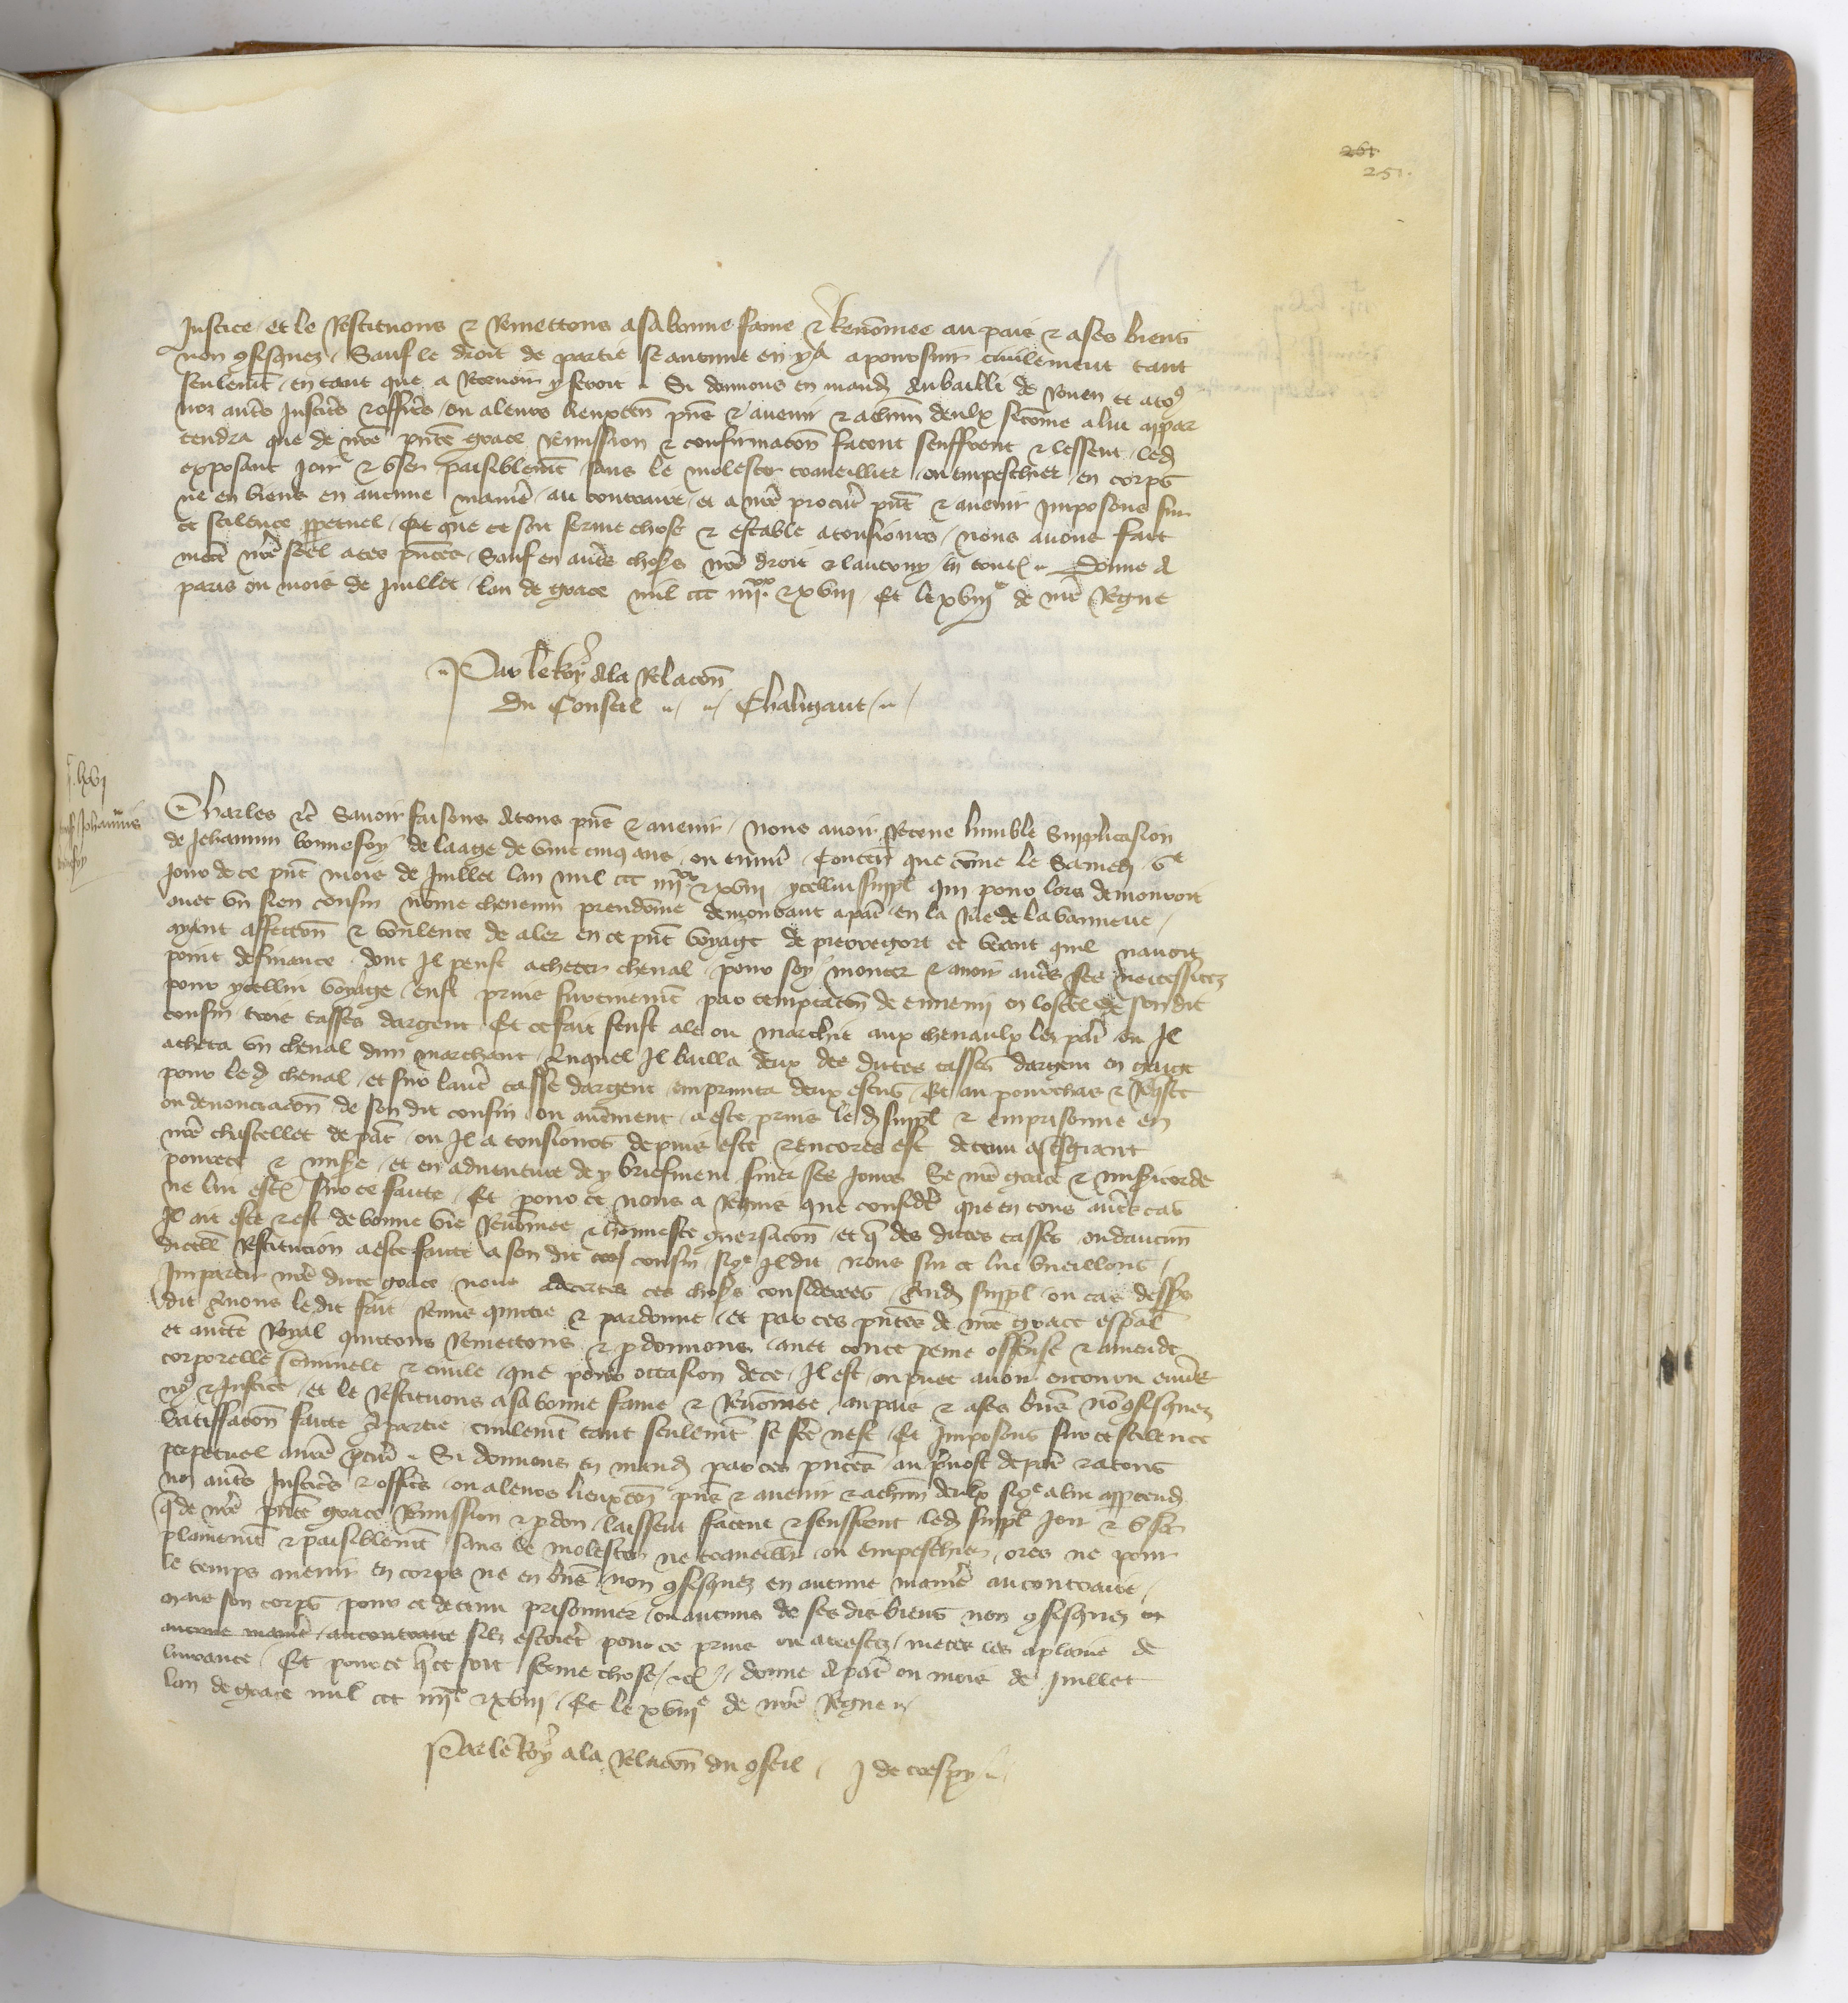 261
251.
Justice et le Restituons & Remettons a sa bonne fame & Renomee au pais & a ses biens
non 9fisquez Sauf le droit de partie se aucune en y a a poursuir civilement tant
seulemt en tant que a Recevoir y seroit Si donnons en mand au bailli de Rouen et a to9
noz autres Justic̃s & offic̃s ou a leurs lieuxten̄ p̃ns & avenir & a chm̃ deulx si cõme a lui appar
tendra que de nr̃e p̃nte grace Remission & confirmacõn facent seuffrent & lessent led
exposant joir & user paisiblemt sans le molester traveillier ou empeschier en corps
ne en biens en aucune manie au contraire et a nr̃e procur̃ p̃nt & avenir Imposons sur
ce scilence ppetuel Et que ce soit ferme chose & estable a tousiours nous avons fait
mett̃ nr̃e seel a ces p̃ntes Sauf en autres choses nr̃e droit & lautruy en toutes Donne a
paris ou mois de Juillet lan de grace mil ccc iiiixx & xviii Et le xviiie de nr̃e Regne
Par le Roy a la Relacõn
Du Conseil Chaligaut
lxvi
Johannis
Charles &c̃ Savoir faisons a tous p̃ns & avenir nous avoir Receue humble Supplicasion
de Jehannin bonnefoy de laage de vint cinq ans ou environ Conten̄ que cõme le Samedi vie
Jour de ce p̃nt mois de Juillet lan mil ccc iiiixx & xviii ycellui suppl̃ qui pour lors demouroit
avec un sien cousin nõme chevenin preudõme demourant a par̃ en la Rue de la vannerie
ayant affeccõn & voulente de aler en ce p̃nt voyage de pierregort et veant quil navoit
point de finance dont Il peust acheter cheval pour soy monter & avoir autres ses neccessitez
pour ycellui voyage eust prins furtivemt par temptacõn de ennemi en lostel de son dit
cousin trois tasses dargent Et ce fait senst ale ou marchie aux chevaulx lez par̃ ou Il
acheta un cheval dun marchant Auquel Il bailla deux des dictes tasses dargent en gaige
pour led cheval et sur lautr̃ tasse dargent emprunta deux escus Et au pourchas & Req̃ste
ou denonciacõn de son dit cousin ou autrement a este prins led suppl̃ & emprisonne en
nr̃e chastellet de par̃ ou Il a tousiours depuis este & encores est detenu a tresgrant
povrete & mis̃e et en adventure de y briefment finer ses jours Se nr̃e grace & misericorde
ne lui est sur ce faicte Et pour ce nous a Requis que consider̃ que en tous autres cas
Il ait este & est de bonne vie Renõmee & honneste 9versacõn et q̃ des dictes tasses ou daucun
dicell̃ Restitucion a este faicte a son dit cousin si9e Il dit nous sur ce lui vueillons
Impartir nr̃e dicte grace nous adcertes ces choses considerees Aud suppl̃ ou cas dessus
dit Avons le dit fait Remis quicte & pardonne et par ces p̃ntes de nr̃e grace esp̃al
et aucte Royal quittons Remettons & pdonnons avec toute peine offense & amende
corporelle criminele & civile que pour occasion de ce Il est ou puet avoir encouru envers
no9 & Justice et le Restituons a sa bonne fame & Renõmee au pais & a ses biens nõ 9fisquez
satiffacõn faicte A partie civilemt tant seulemt se fc̃e nest Et Imposons sur ce scilence
perpetuel a nr̃e p̃cur̃ Si donnons en mand par ces p̃ntes au p̃vost de par̃ & a tous
noz autres Justic̃s & offic̃s ou a leurs lieuxten̄ p̃ns & avenir & a chm̃ deulx si9e a lui apptend
q̃ de nr̃e p̃nte grace Remission & pdon laissent facent & seuffrent led suppl̃ Joir & user
plainemt & paisiblemt sans le molester ne traveillier ou empeschier ores ne pour
le temps avenir en corps ne en biens non 9fisquez en aucune manie au contraire
mais son corps pour ce detenu prisonnier ou aucuns de ses dis biens non 9fisquez en
aucune manie au contraire silz estoient pour ce prins ou arrestez mettre les a plaine de
livrance Et pour ce q̃ ce soit ferme chose &c̃ donne A par̃ ou mois de Juillet
lan de grace mil ccc iiiixx & xviii Et le xviiie de nr̃e Regne
Par le Roy a la Relacõn du 9seil J de crespy